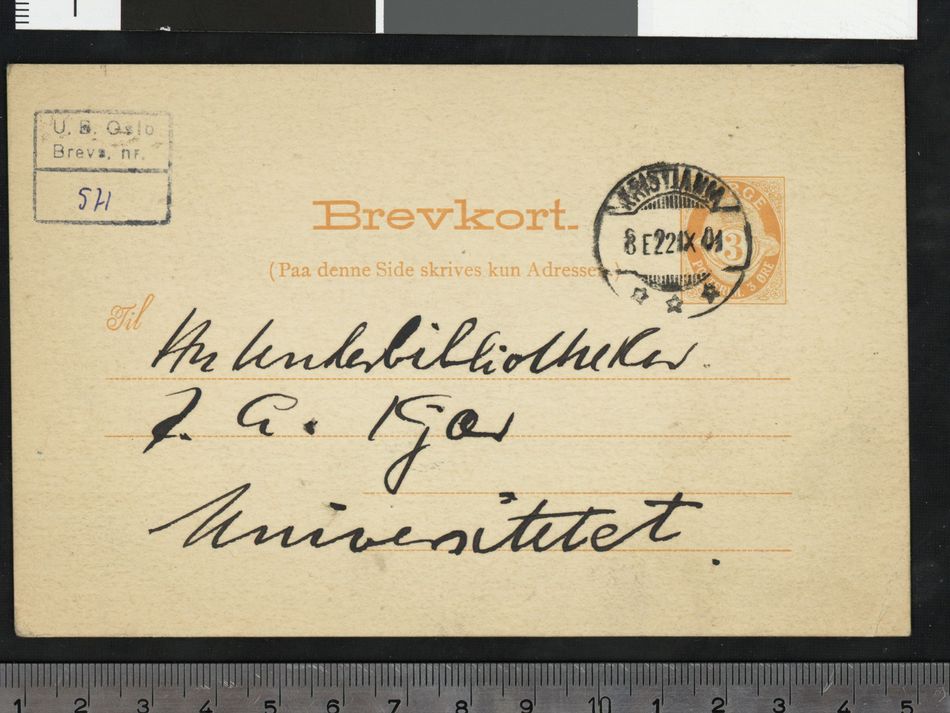 U. B. Oslo
Brevs. nr.
571
Brevkort.
(Paa denne Side skrives kun Adressen.)
KRISTIANIA
8 E 22 IX 01
NORGE
3
POSTFRIM. 3 ØRE
Til
Hr Underbibliotheker
J. A. Kjær
Universitetet.
1 2 3 4 5 6 7 8 9 10 1 2 3 4 5